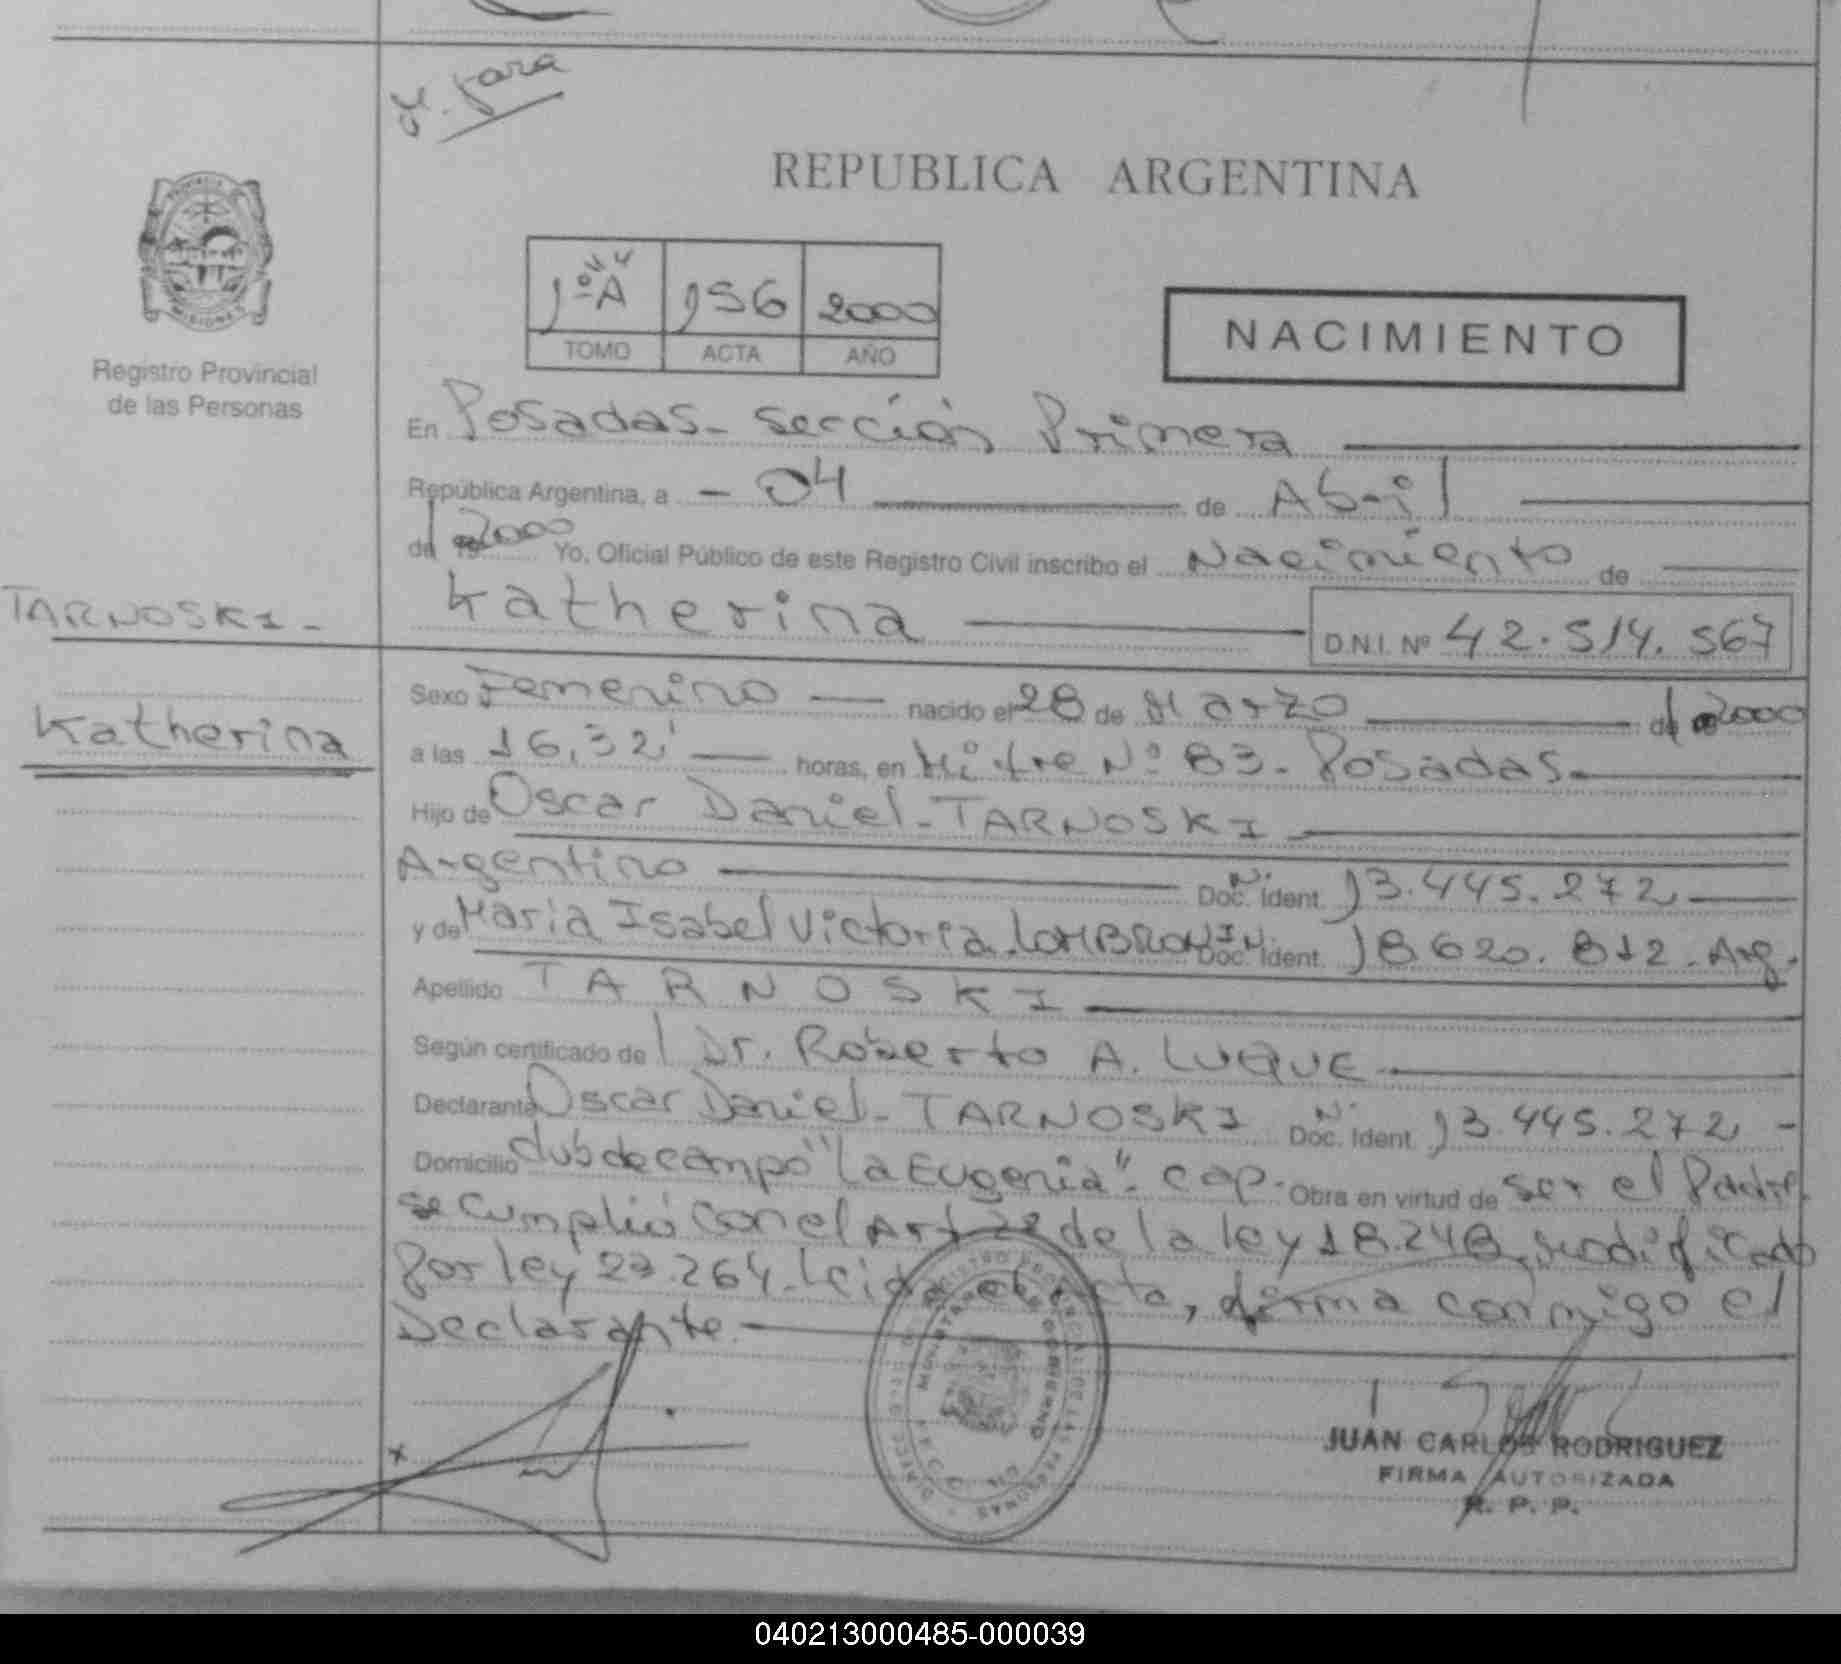 REPUBLICA ARGENTINA
1ºA 156 2000
TOMO ACTA AÑO
NACIMIENTO
PROVINCIA DE
MISIONES
Registro Provincial
de las Personas
En Posadas - sección Primera
República Argentina, a - 04 de Abril
de 2000 Yo, Oficial Público de este Registro Civil inscribo el Nacimiento de
TARNOSKI -
Katherina D.N.I. Nº 42.514.567
Katherina
Sexo Femenino nacido el 28 de Marzo de 2000
a las 16,32' horas, en Mitre Nº 83 - Posadas -
Hijo de Oscar Daniel - TARNOSKI
Argentino Doc. Ident. 13.445.272
y de Maria Isabel Victoria LOMBRONIN Doc. Ident. 18620.812 - Arg.
Apellido TARNOSKI
Según certificado de Dr. Roberto A. LUQUE
Declarante Oscar Daniel - TARNOSKI Doc. Ident. 13.445.272 -
Domicilio Club de campo "La Eugenia" - Cap. Obra en virtud de ser el Padre.
se cumplió con el Art 2º de la ley 18.248, modificado
Por ley 23.264 - Leida el acta, firma conmigo el
Declarante -
JUAN CARLOS RODRIGUEZ
FIRMA AUTORIZADA
R. P. P.
040213000485-000039